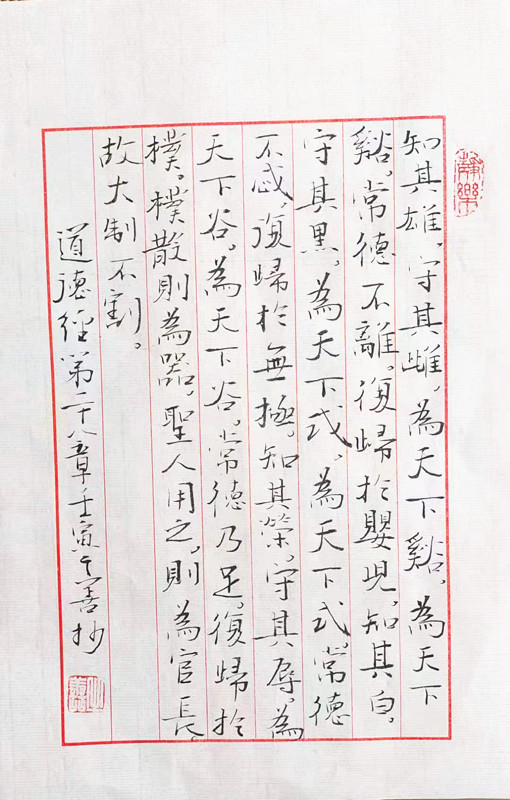 知其雄，守其雌，為天下谿。為天下
谿，常德不離，復歸於嬰兒。知其白，
守其黑，為天下式。為天下式，常德
不忒，復歸於無極。知其榮，守其辱，為
天下谷。為天下谷，常德乃足，復歸於
樸。樸散則為器，聖人用之，則為官長。
故大制不割。
道德經第二十八章壬寅之善抄